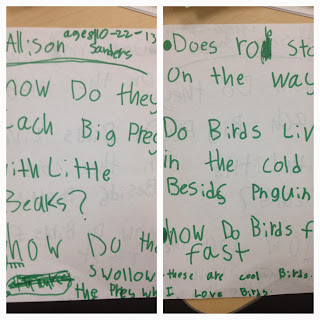 Allison age8 10-22-13
Sanders
how Do they
each Big Prey
with Little
Beaks?
how Do the
Swollow
the Prey wh
Does rod sto
on the way
Do Birds Liv
in the cold
Besids Pnguin
how Do Birds f
fast
these are cool Birds.
I Love Birds.